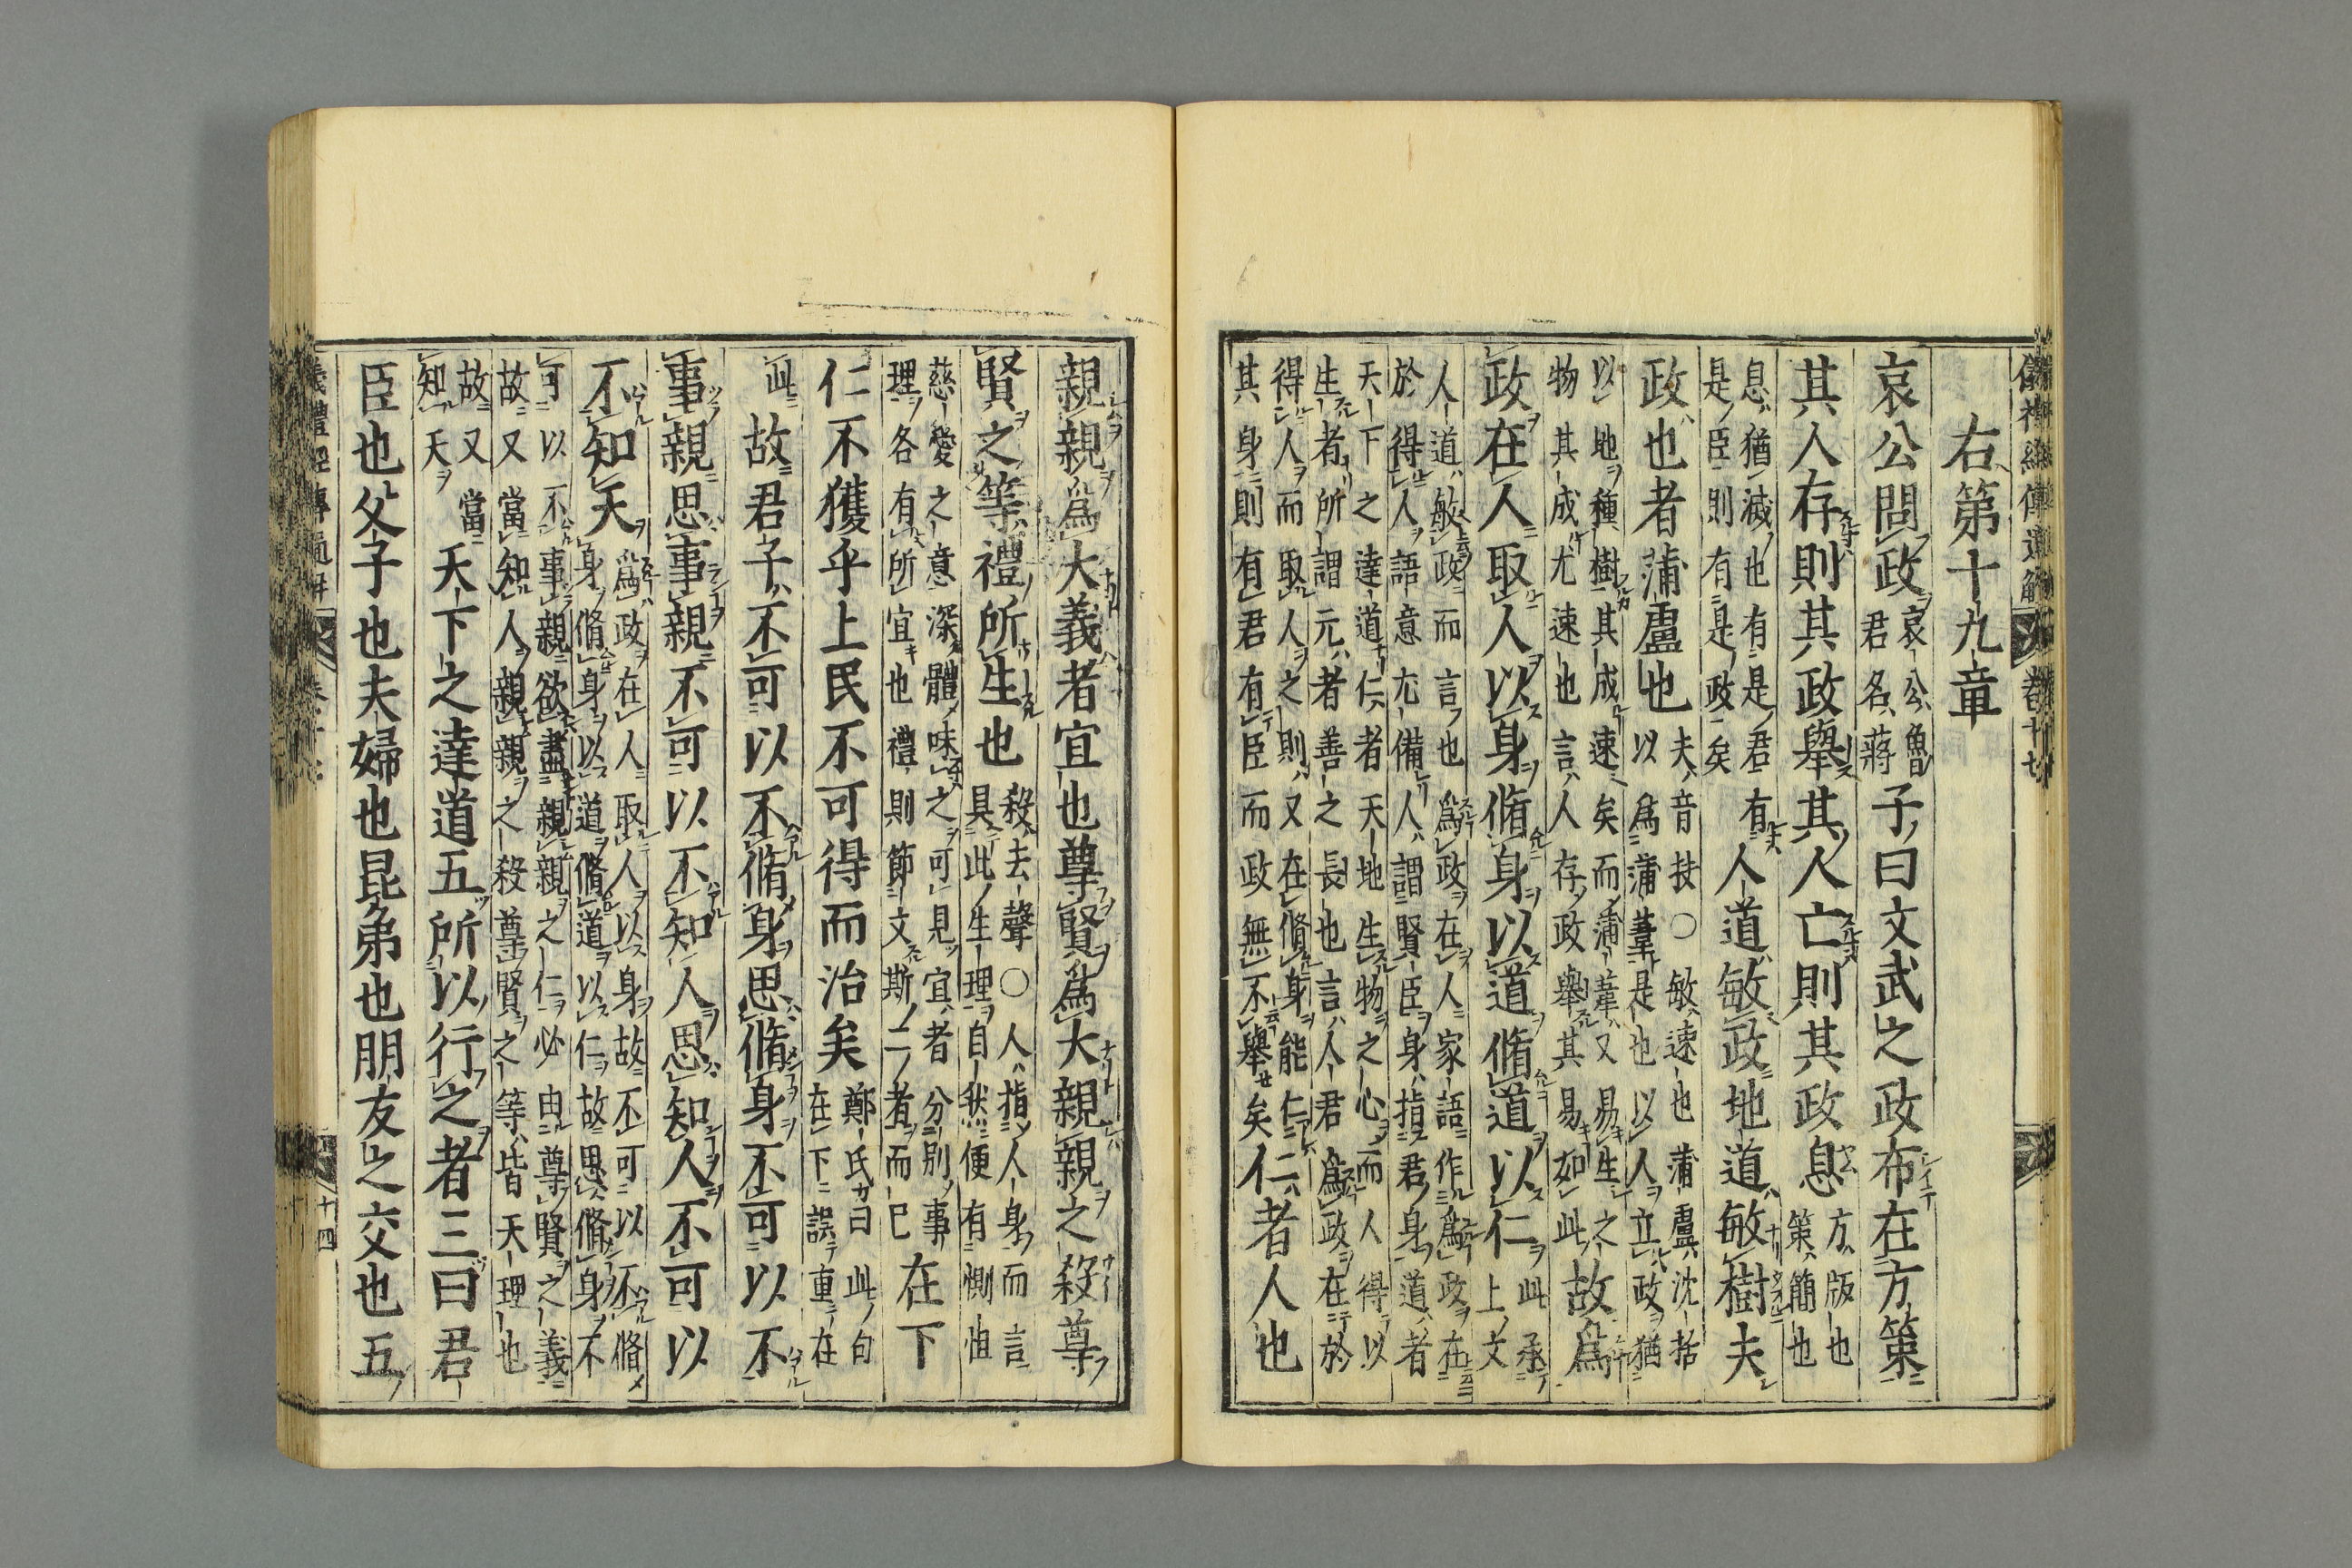 儀禮經傳通解 卷十七
右第十九章
哀公問政哀公魯君名蔣子曰文武之政布在方策
其人存則其政舉其人亡則其政息方版也策簡也
息猶滅也有是君有是臣則有是政矣人道敏政地道敏樹夫
政也者蒲盧也夫音扶○敏速也蒲盧沈括以爲蒲葦是也以人立政猶
以地種樹其成速矣而蒲葦又易生之物其成尤速也言人存政舉其易如此故爲
政在人取人以身脩身以道脩道以仁此承上文
人道敏政而言也爲政在人家語作爲政在
於得人語意尤備人謂賢臣身指君身道者
天下之達道仁者天地生物之心而人得以
生者所謂元者善之長也言人君爲政在於
得人而取人之則又在脩身能仁其身則有君有臣而政無不舉矣仁者人也
親親爲大義者宜也尊賢爲大親親之殺尊
賢之等禮所生也殺去聲○人指人身而言具此生理自然便有惻怛
慈愛之意深體味之可見宜者分別事理各有所宜也禮則節文斯二者而已在下
仁不獲乎上民不可得而治矣鄭氏曰此句在下誤重在
此故君子不可以不脩身思脩身不可以不
事親思事親不可以不知人思知人不可以
不知天爲政在人取人以身故不可以不脩身脩身以道脩道以仁故思脩身不
可以不事親欲盡親親之仁必由尊賢之義
故又當知人親親之殺尊賢之等皆天理也
故又當知天天下之達道五所以行之者三曰君
臣也父子也夫婦也昆弟也朋友之交也五
十四